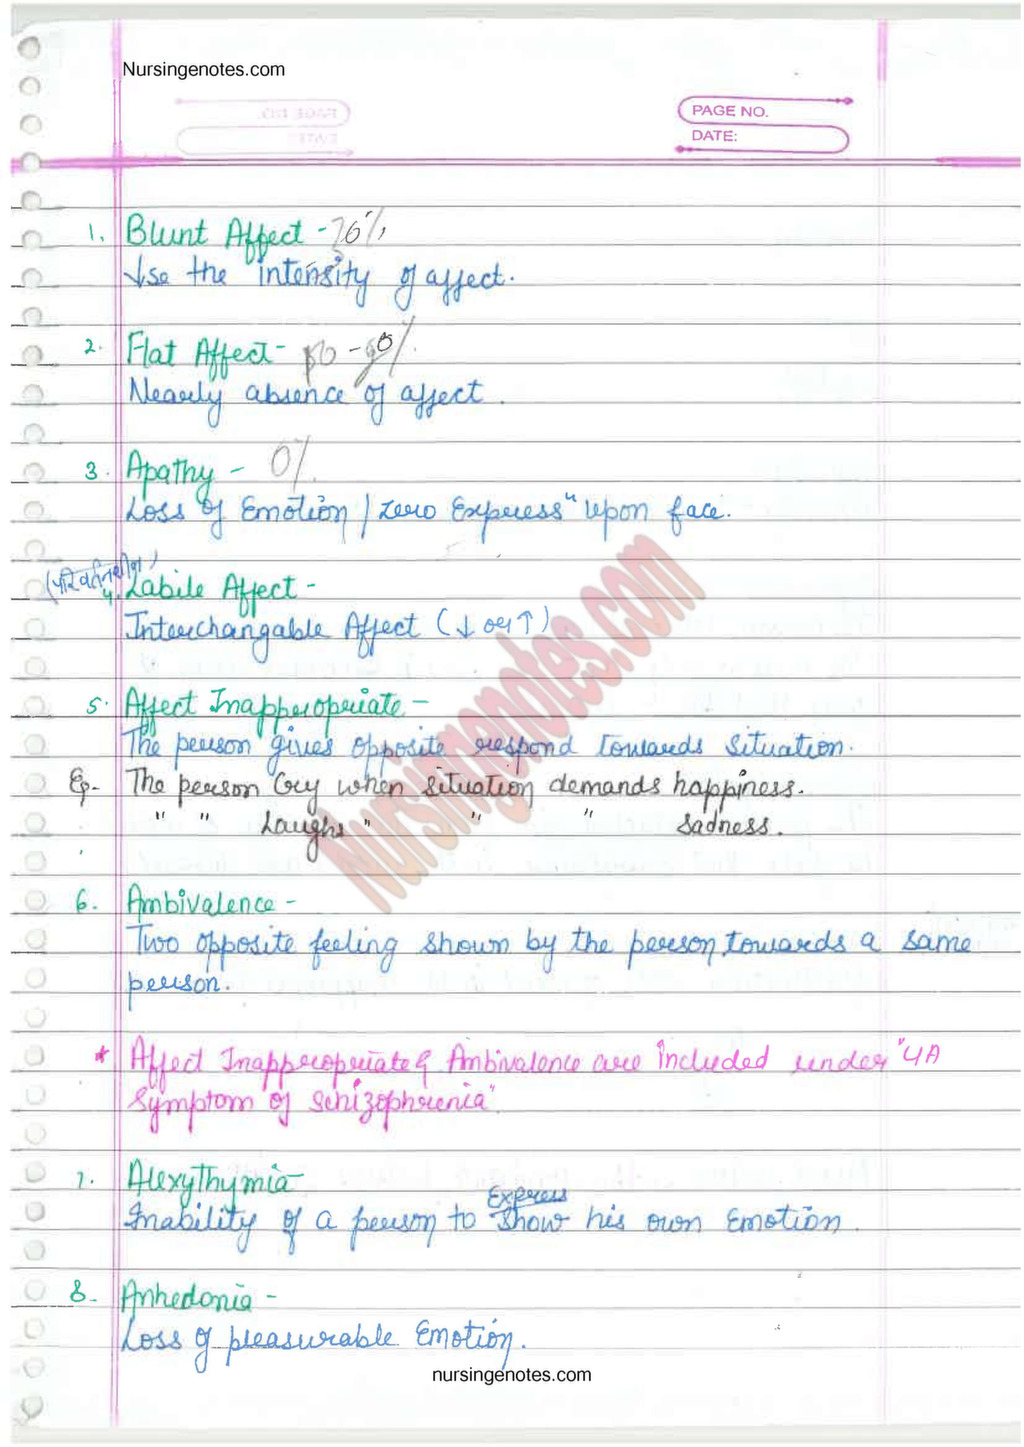 Nursingenotes.com
PAGE NO.
DATE:
1. Blunt Affect - 70%
↓se the intensity of affect.
2. Flat Affect -
Nearly absence of affect.
3. Apathy - 0%
Loss of Emotion / zero Express" upon face.
(परिवर्तनशील)
4. Labile Affect -
Interchangable Affect (↓ or ↑)
5. Affect Inappropriate -
The person gives opposite respond towards situation.
Eg- The person Cry when situation demands happiness.
" " Laughs " " " Sadness.
6. Ambivalence -
Two opposite feeling shown by the person towards a same
person.
* Affect Inappropriate & Ambivalence are included under "4A
Symptom of schizophrenia"
7. Alexythymia
Express
Inability of a person to show his own Emotion.
8- Anhedonia -
Loss of pleasurable Emotion.
Nursingenotes.com
nursingenotes.com